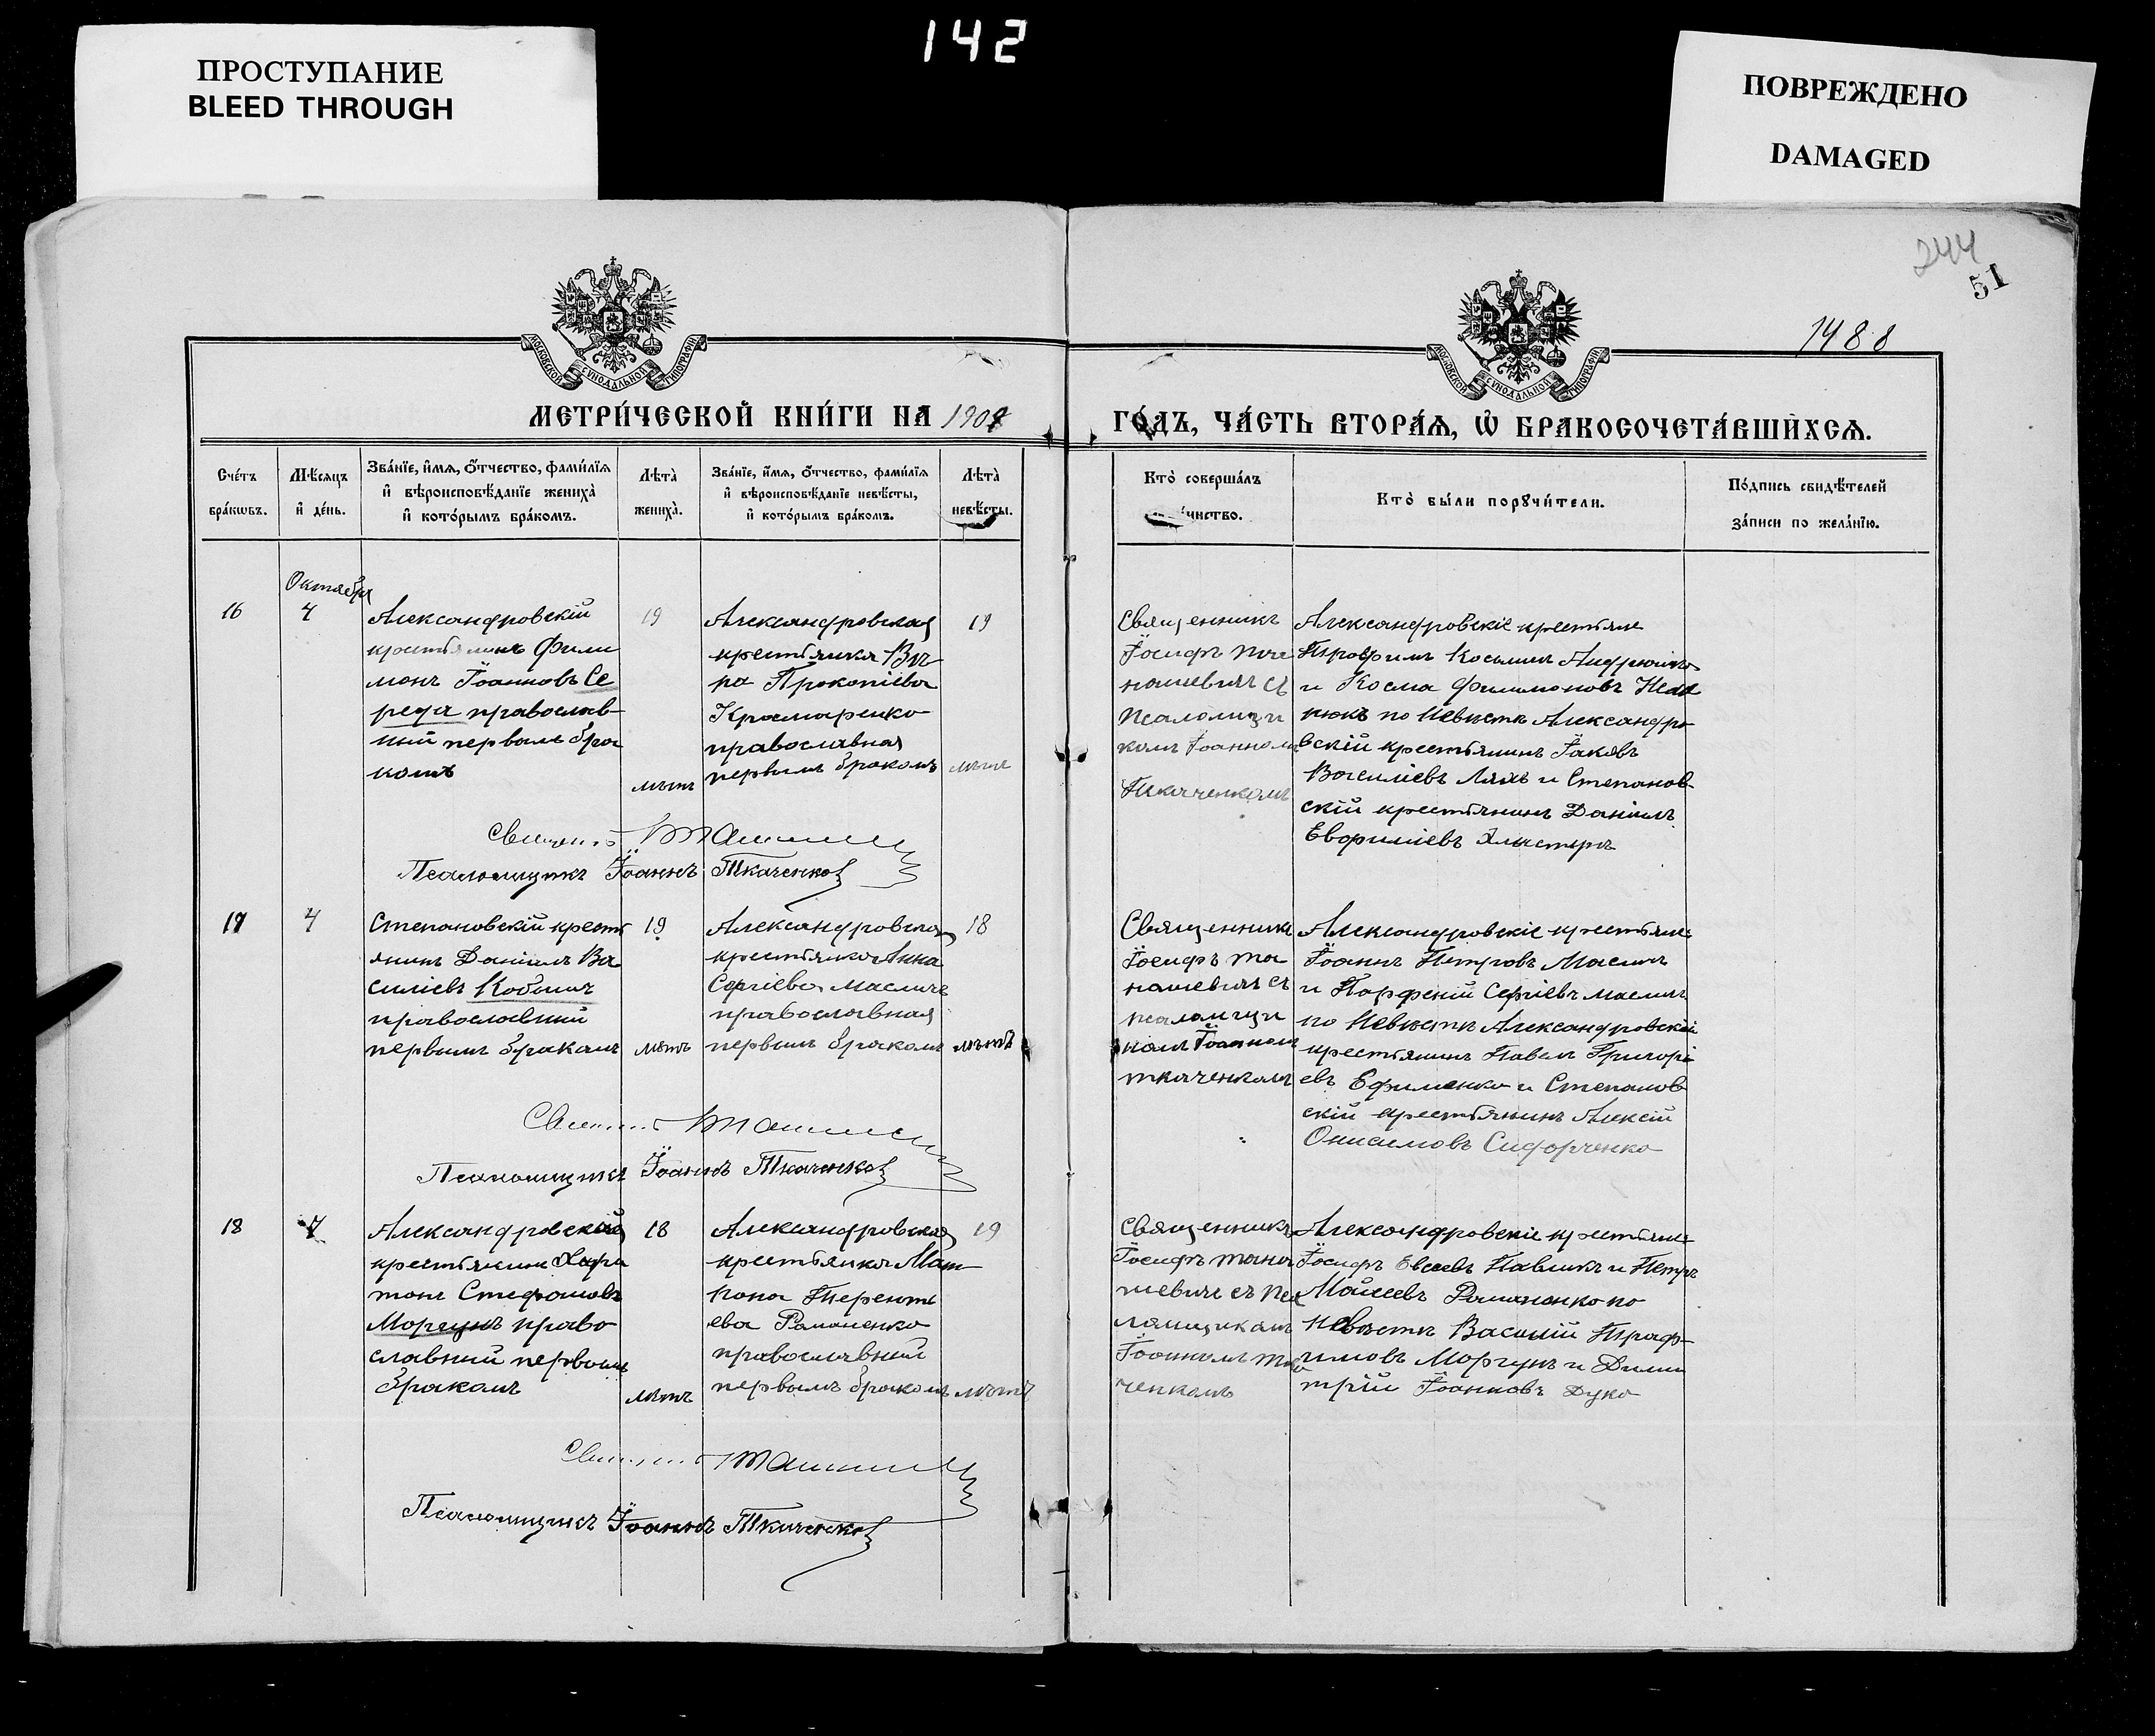 142
ПРОСТУПАНИЕ
BLEED THROUGH
ПОВРЕЖДЕНО
DAMAGED
244
51
1488
МОСКОВСКОЙ СѴНОДАЛЬНОЙ ТИПОГРАФІИ
МОСКОВСКОЙ СѴНОДАЛЬНОЙ ТИПОГРАФІИ
МЕТРИ́ЧЕСКОЙ КНИ́ГИ НА 1907
ГО́ДЪ, ЧА́СТЬ ВТОРА́Ѧ, Ѡ҆ БРАКОСОЧЕТА́ВШИХСѦ.
Сче́тъ
бра́кѡвъ.
Мѣ́сѧцъ
и҆ де́нь.
Зва́нїе, и҆́мѧ, ѻ҆́тчество, фами́лїѧ
и҆ вѣроисповѣ́данїе жениха̀
и҆ кото́рымъ бра́комъ.
Лѣта̀
жениха̀.
Зва́нїе, и҆́мѧ, ѻ҆́тчество, фами́лїѧ
и҆ вѣроисповѣ́данїе невѣ́сты,
и҆ кото́рымъ бра́комъ.
Лѣта̀
невѣ́сты.
Кто̀ соверша́лъ
чинство.
Кто̀ бы́ли порꙋчи́тели.
По́дпись свидѣ́телей
за́писи по жела́нїю.
Октября
16
4
Александровскій
крестьянинъ Фили
монъ Іоанновъ Се
реда православ-
ный первымъ бра
комъ
19
лѣтъ
Александровская
крестьянка Вѣ
ра Прокопіева
Крамаренко
православная
первымъ бракомъ
19
лѣтъ
Священникъ
Іосифъ
нашевичъ съ
Псаломщи
комъ Іоанномъ
Ткаченкомъ
Александровскіе крестьяне
Трофимъ Косьминъ
и Косма Филимоновъ
по Невѣстѣ Александро
вскій крестьянинъ Іаковъ
Василіевъ Ляхъ и Степанов-
скій крестьянинъ Даніилъ
Евфиміевъ
Священ.
Псаломщикъ Іоаннъ Ткаченко
17
4
Степановскій кресть
янинъ Даніилъ Ва
силіевъ
православный
первымъ бракомъ
19
лѣтъ
Александровская
крестьянка Анна
Сергіева Масличъ
православная
первымъ бракомъ
18
лѣтъ
Священникъ
Іосифъ Та
нашевичъ съ
псаломщи
комъ Іоанномъ
ткаченкомъ
Александровскіе крестьяне
Іоаннъ Петровъ Масличъ
и Порфирій Сергіевъ Масличъ
по Невѣстѣ Александровскій
крестьянинъ Павелъ Григорі
евъ Ефименко и Степанов
скій крестьянинъ Алексій
Онисимовъ Сидорченко
Священ.
Псаломщикъ Іоаннъ Ткаченко
18
7
Александровскій
крестьянинъ Хари
тонъ Стефановъ
Моргунъ право
славный первымъ
бракомъ
18
лѣтъ
Александровская
крестьянка Мат
рона Терентъ
ева Романенко
православный
первымъ бракомъ
19
лѣтъ
Священникъ
Іосифъ Тана
шевичъ съ Пса
ломщикомъ
Іоанномъ Тка
ченкомъ
Александровскіе крестьяне
Іосифъ Евсеевъ Павликъ и Петръ
Моисеевъ Романенко по
Невѣстѣ Василій Троф-
имовъ Моргунъ и Дими
трій Іоанновъ
Священ.
Псаломщикъ Іоаннъ Ткаченко